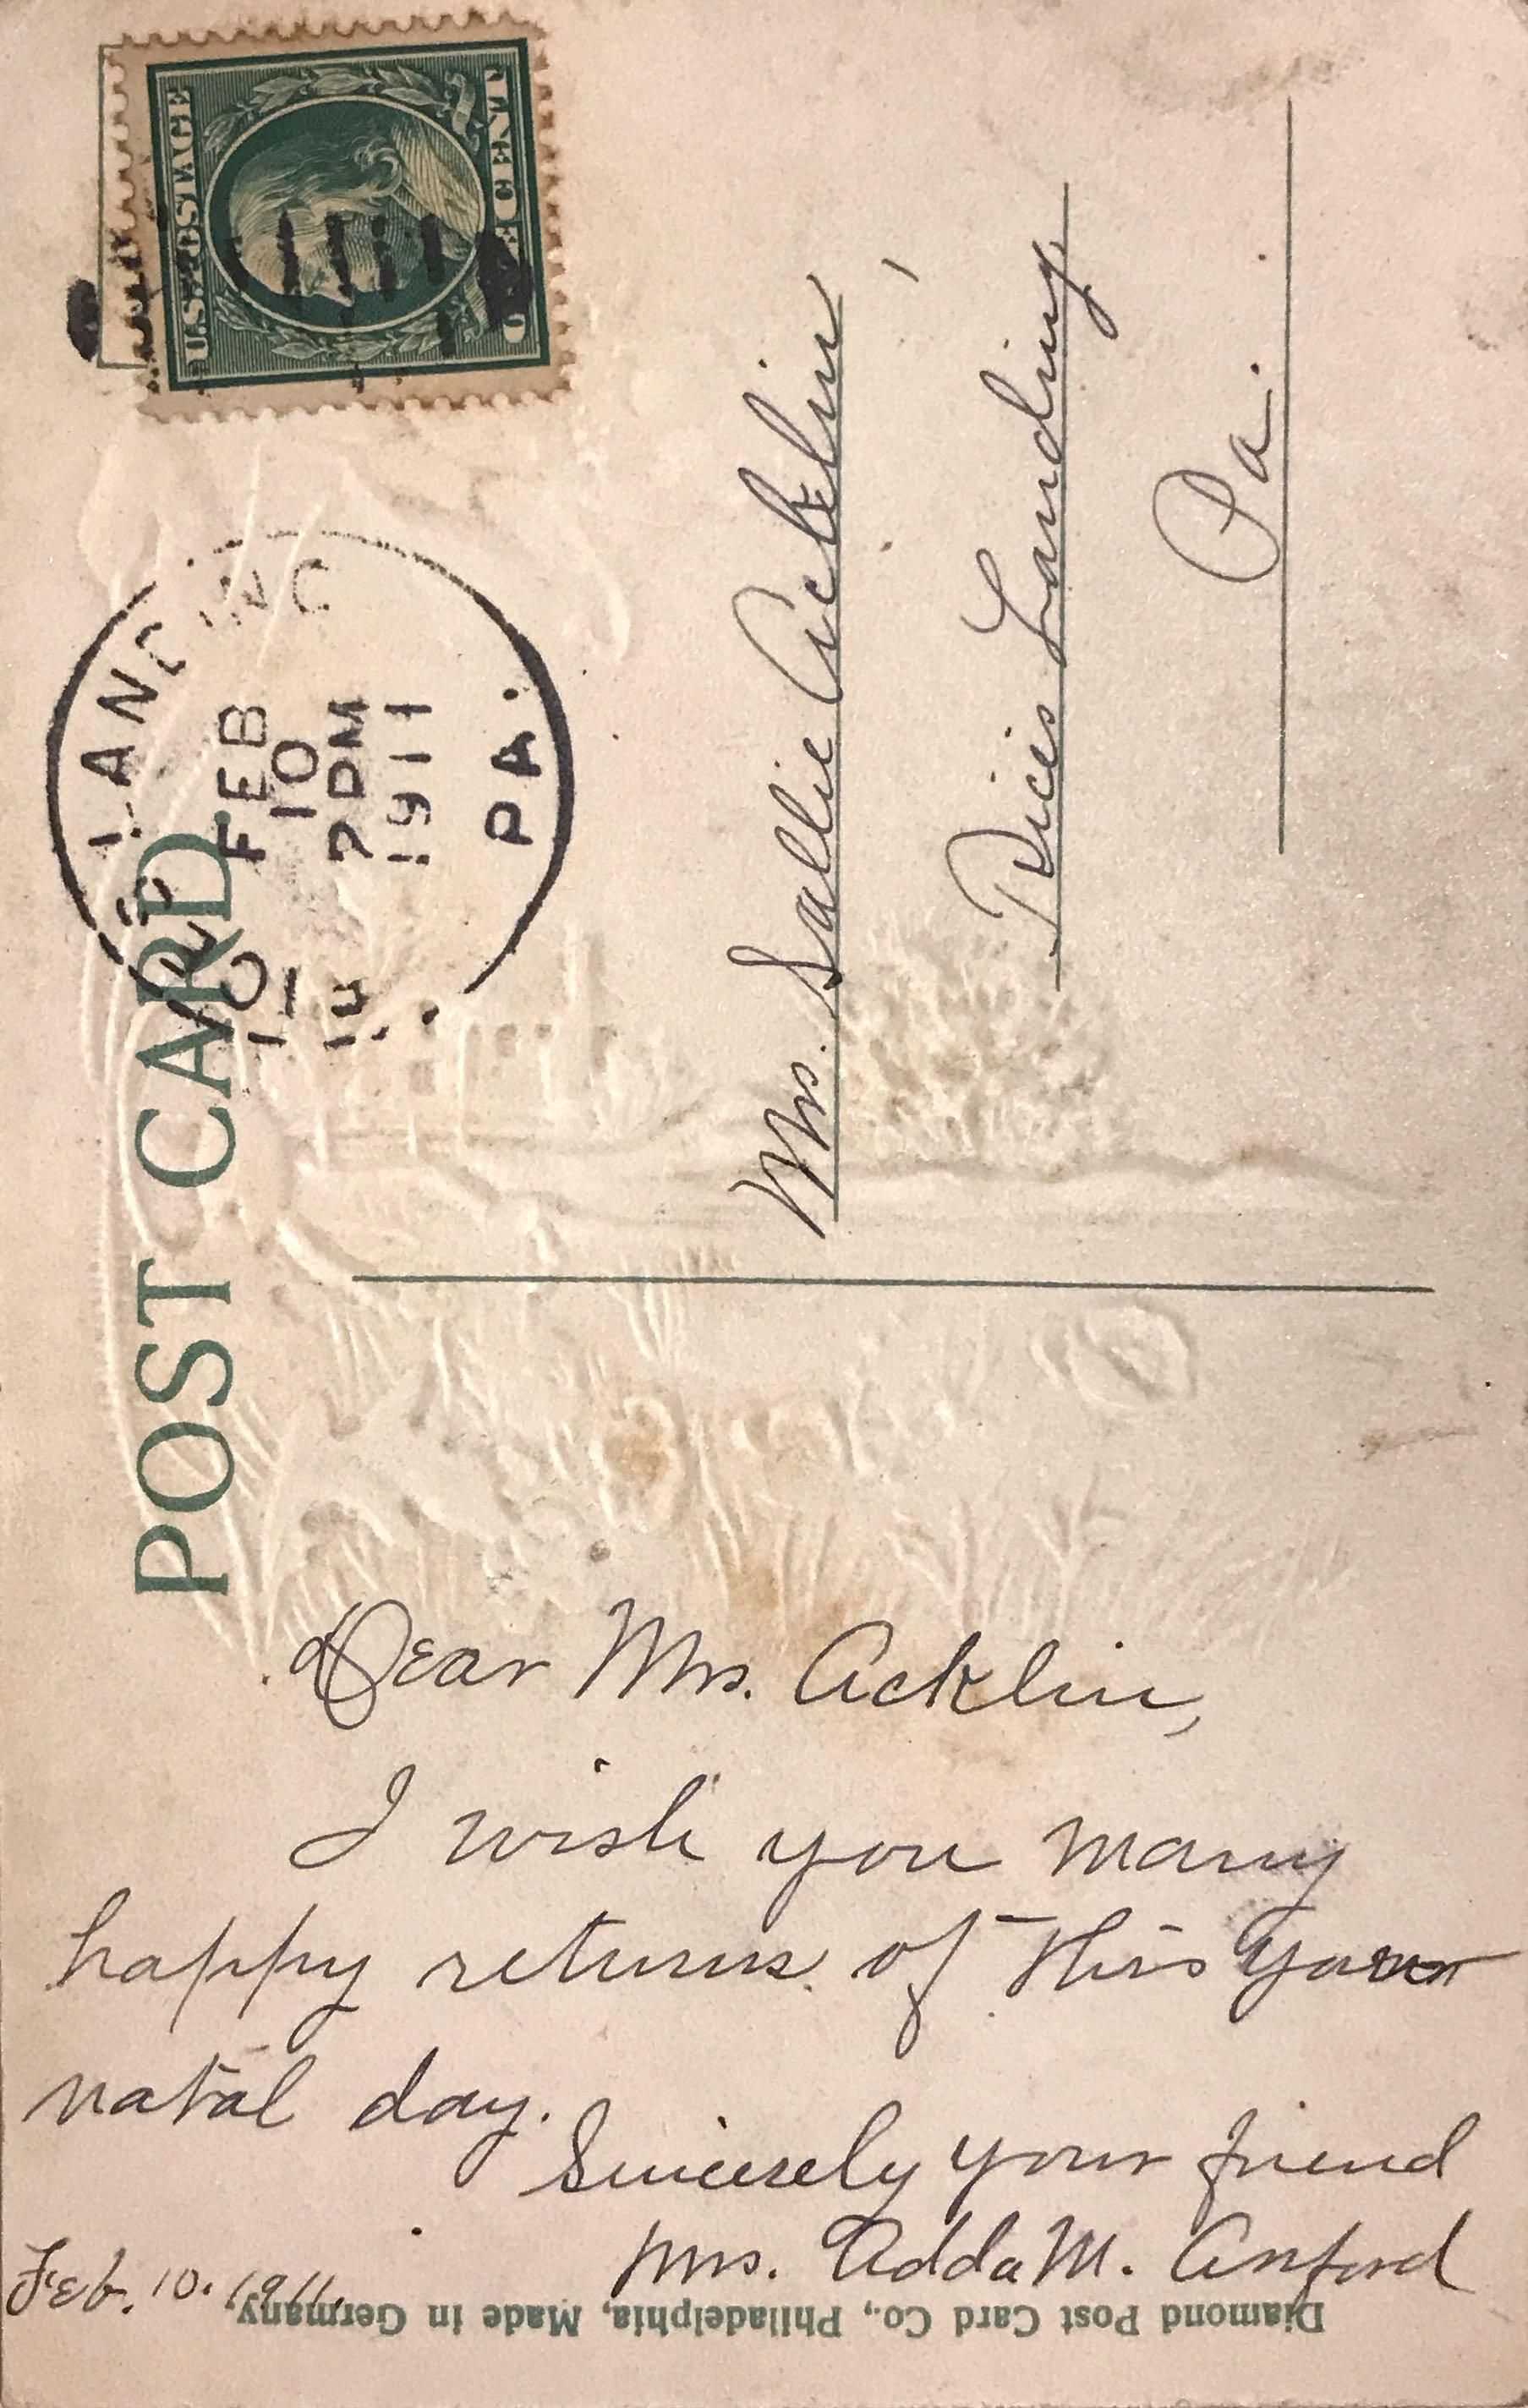 U.S. POSTAGE
ONE CENT
LANDING
FEB
10
2 PM
1911
PA.
POST CARD
Mrs. Sallie Acklin,
Rices Landing
Pa.
Dear Mrs. Acklin,
I wish you many
happy returns of this your
natal day.
Sincerely your friend
Mrs. Adda M. Axford
Feb. 10. 1911.
Diamond Post Card Co., Philadelphia, Made in Germany,